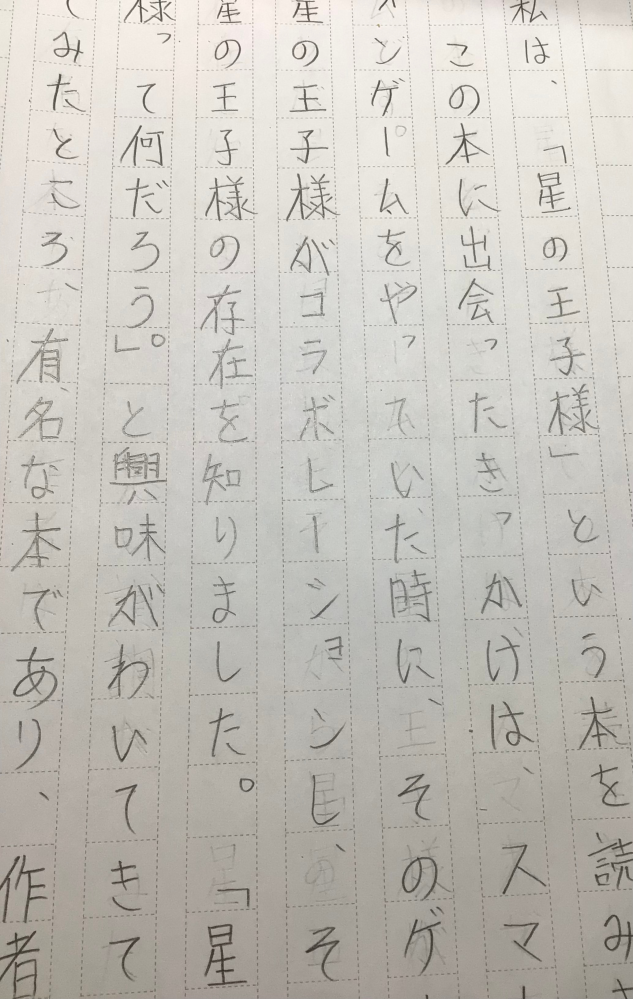 私は、「星の王子様」という本を読み
この本に出会ったきっかけは、スマ
ンゲームをやっていた時に、そのゲ
星の王子様がコラボレーションし、そ
星の王子様の存在を知りました。「星
様って何だろう。」と興味がわいてきて
てみたところ、有名な本であり、作者